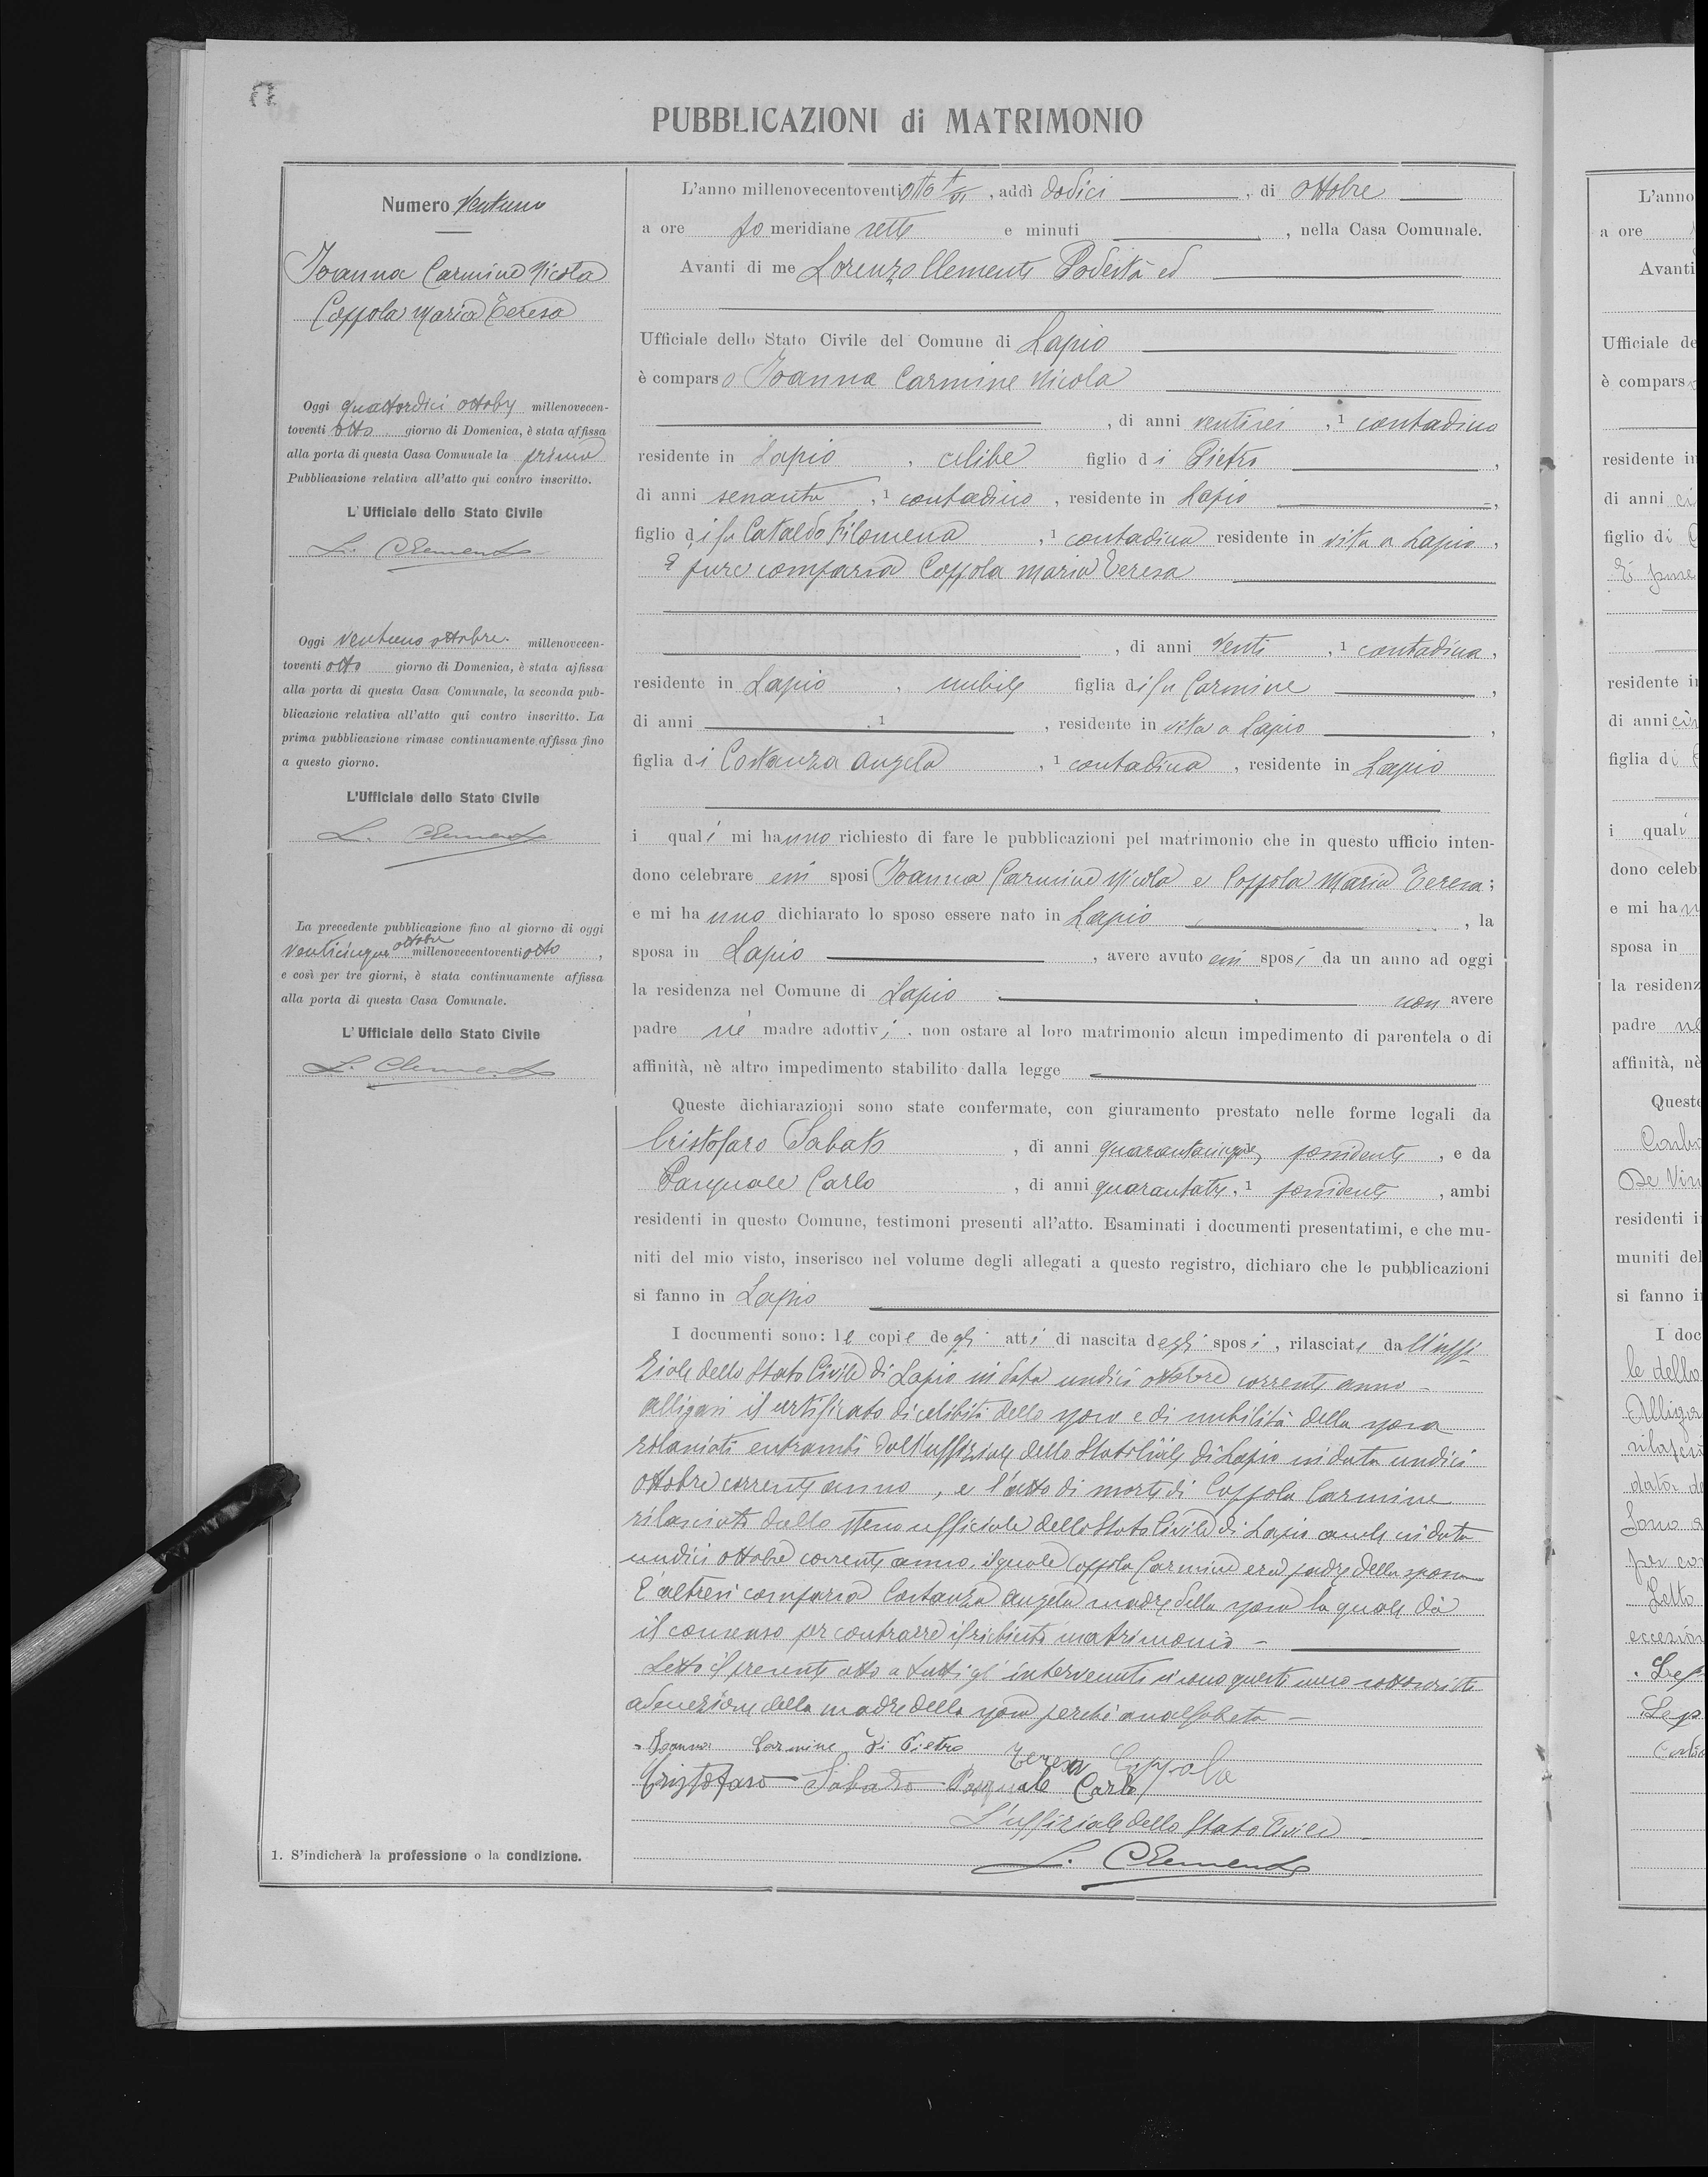 PUBBLICAZIONI di MATRIMONIO
Numero Ventuno
Ioanna Carmine Nicola
Coppola Maria Teresa
Oggi quattordici ottobre millenovecen-
toventi otto giorno di Domenica, è stata affissa
alla porta di questa Casa Comunale la prima
Pubblicazione relativa all'atto qui contro inscritto.
L'Ufficiale dello Stato Civile
L. Clemente
Oggi ventuno ottobre millenovecen-
toventi otto giorno di Domenica, è stata affissa
alla porta di questa Casa Comunale, la seconda pub-
blicazione relativa all'atto qui contro inscritto. La
prima pubblicazione rimase continuamente affissa fino
a questo giorno.
L'Ufficiale dello Stato Civile
L. Clemente
La precedente pubblicazione fino al giorno di oggi
venticinque ottobre millenovecentoventi otto,
e così per tre giorni, è stata continuamente affissa
alla porta di questa Casa Comunale.
L'Ufficiale dello Stato Civile
L. Clemente
1. S'indicherà la professione o la condizione.
L'anno millenovecentoventi otto, addì dodici, di ottobre
a ore meridiane sette e minuti, nella Casa Comunale.
Avanti di me Lorenzo Clemente Podestà ed
Ufficiale dello Stato Civile del Comune di Lapio
è comparso Ioanna Carmine Nicola
, di anni ventisei, 1 contadino
residente in Lapio, celibe figlio di Pietro,
di anni sessanta, 1 contadino, residente in Lapio,
figlio di fu Cataldo Filomena, 1 contadina residente in vita a Lapio,
E pure comparsa Coppola Maria Teresa
, di anni venti, 1 contadina,
residente in Lapio, nubile figlia di fu Carmine,
di anni 1, residente in vita a Lapio,
figlia di Costanza Angela, 1 contadina, residente in Lapio
i quali mi hanno richiesto di fare le pubblicazioni pel matrimonio che in questo ufficio inten-
dono celebrare essi sposi Ioanna Carmine Nicola e Coppola Maria Teresa;
e mi hanno dichiarato lo sposo essere nato in Lapio, la
sposa in Lapio, avere avuto essi sposi da un anno ad oggi
la residenza nel Comune di Lapio, non avere
padre né madre adottivi, non ostare al loro matrimonio alcun impedimento di parentela o di
affinità, nè altro impedimento stabilito dalla legge
Queste dichiarazioni sono state confermate, con giuramento prestato nelle forme legali da
Cristofaro Sabato, di anni quarantacinque, possidente, e da
Pasquale Carlo, di anni quarantatre, 1 possidente, ambi
residenti in questo Comune, testimoni presenti all'atto. Esaminati i documenti presentatimi, e che mu-
niti del mio visto, inserisco nel volume degli allegati a questo registro, dichiaro che le pubblicazioni
si fanno in Lapio
I documenti sono: le copie degli atti di nascita degli sposi, rilasciate dall'uffi-
ziale dello Stato Civile di Lapio in data undici ottobre corrente anno -
il certificato di celibità dello sposo e di nubilità della sposa
rilasciati entrambi dall'uffiziale dello Stato Civile di Lapio in data undici
ottobre corrente anno, e l'atto di morte di Coppola Carmine
rilasciato dallo stesso ufficiale dello Stato Civile di Lapio anche in data
undici ottobre corrente anno, il quale Coppola Carmine era padre della sposa
E' altresì comparsa Costanza Angela madre della sposa la quale dà
il consenso per contrarre il richiesto matrimonio -
Letto il presente atto a tutti gl'intervenuti si sono questi meco sottoscritti
ad eccezione della madre della sposa perchè analfabeta -
Ioanna Carmine di Pietro Teresa Coppola
Cristofaro Sabato Pasquale Carlo
L'uffiziale dello Stato Civile
L. Clemente
L'anno
a ore
Avanti
Ufficiale de
è compars
residente in
di anni
figlio di
E pure
residente in
di anni
figlia di
i quali
dono celeb
e mi ha
sposa in
la residenz
padre
affinità, nè
Queste
De Vin
residenti i
muniti del
si fanno i
I doc
le dello